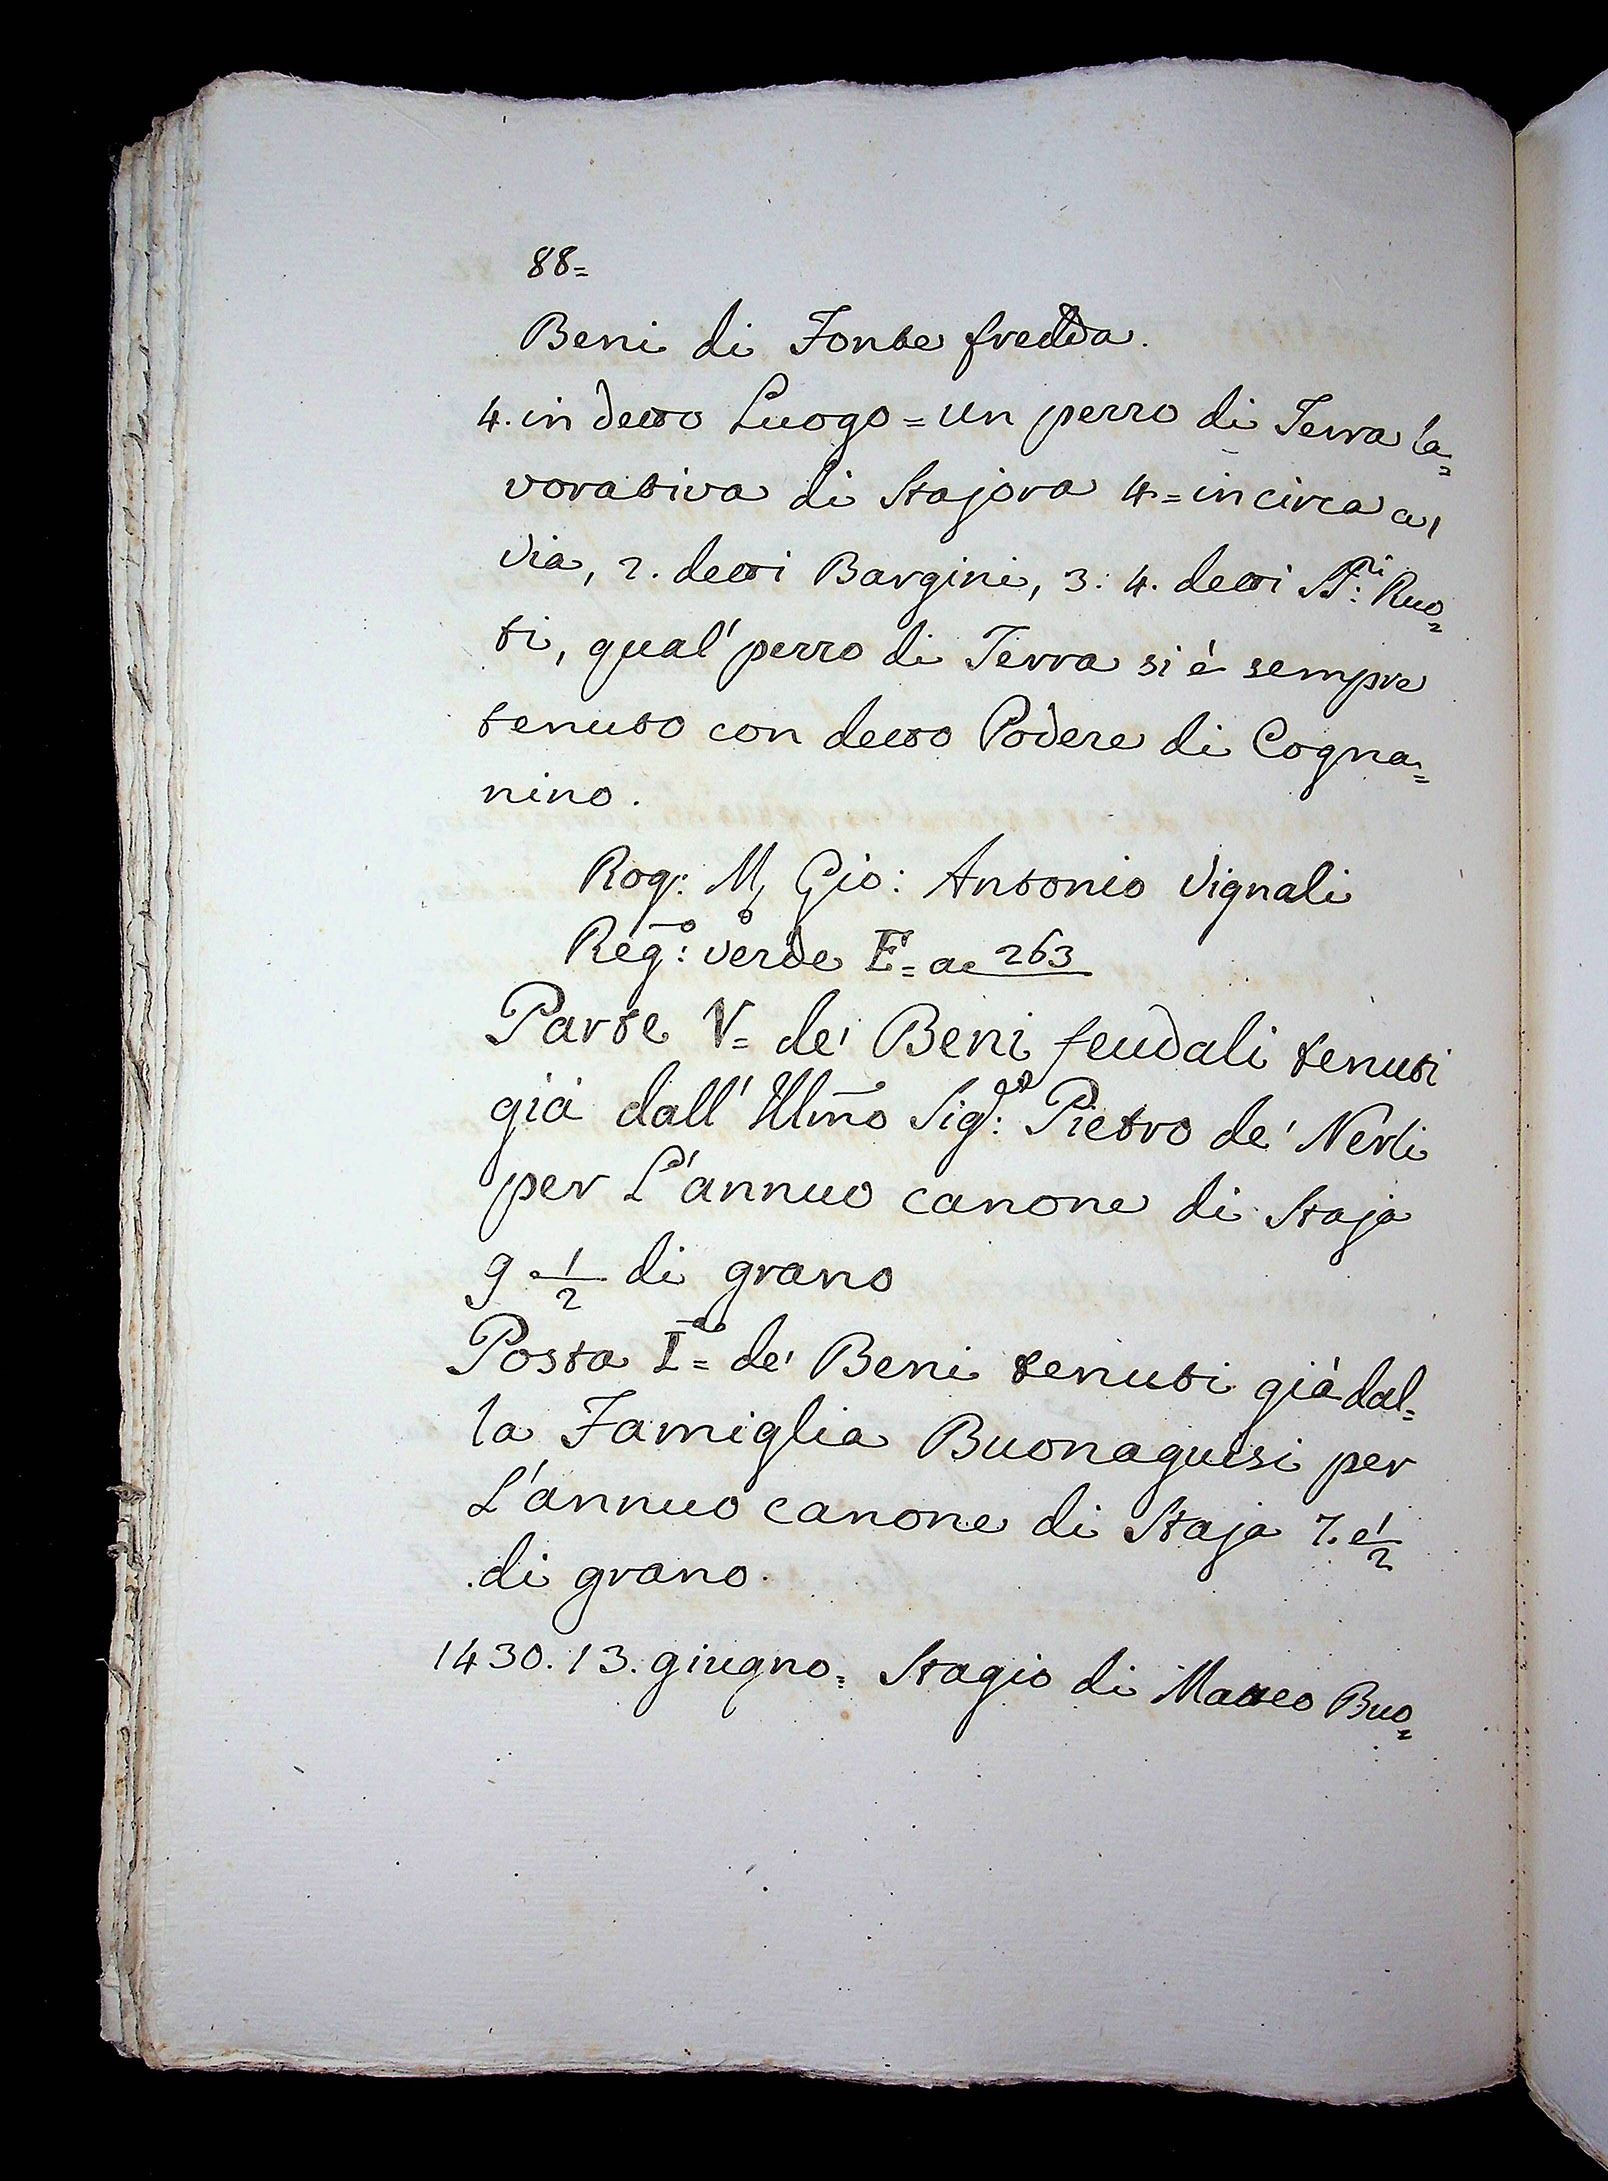 88=
Beni di Fonte fredda.
4. in detto Luogo = un pezzo di Terra la=
vorativa di Stajora 4 = in circa a 1
via, 2. detti Bargini, 3: 4. detti SS:ri Ruo=
ti, qual' pezzo di Terra si è sempre
tenuto con detto Podere di Cogna=
nino.
Rog: M, Gio: Antonio Vignali
Reg:o verde E= a. 263
Parte V= de' Beni feudali tenuti
già dall' Illmo Sig:e Pietro de' Nerli
per L'annuo canone di Staja
9 1/2 di grano
Posta I= de' Beni tenuti già dal=
la Famiglia Buonaguisi per
L'annuo canone di Staja 7. e 1/2
di grano.
1430. 13. giugno = Stagio di Matteo Buo=